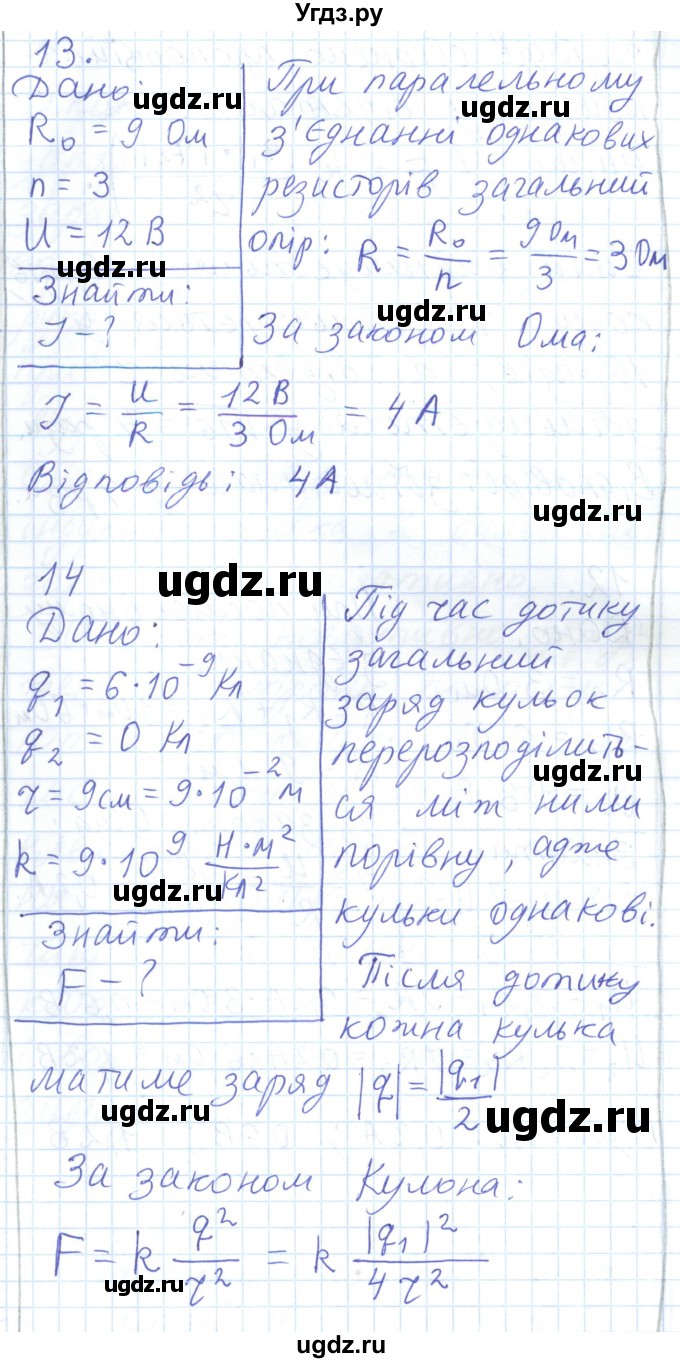 Угдз.ру
13.
Дано:
R₀ = 9 Ом
n = 3
U = 12 В
Знайти:
I - ?
При паралельному
з'єднанні однакових
резисторів загальний
опір: R = R₀/n = 9 Ом/3 = 3 Ом
За законом Ома:
I = U/R = 12 В/3 Ом = 4 А
Відповідь: 4 А
14
Дано:
q₁ = 6·10⁻⁹ Кл
q₂ = 0 Кл
r = 9 см = 9·10⁻² м
k = 9·10⁹ Н·м²/Кл²
Знайти:
F - ?
Під час дотику
загальний
заряд кульок
перерозподілить-
ся між ними
порівну, адже
кульки однакові.
Після дотику
кожна кулька
матиме заряд |q| = |q₁|/2
За законом Кулона:
F = k q²/r² = k |q₁|²/4r²
ugdz.ru
ugdz.ru
ugdz.ru
ugdz.ru
ugdz.ru
ugdz.ru
ugdz.ru
ugdz.ru
ugdz.ru
ugdz.ru
ugdz.ru
ugdz.ru
ugdz.ru